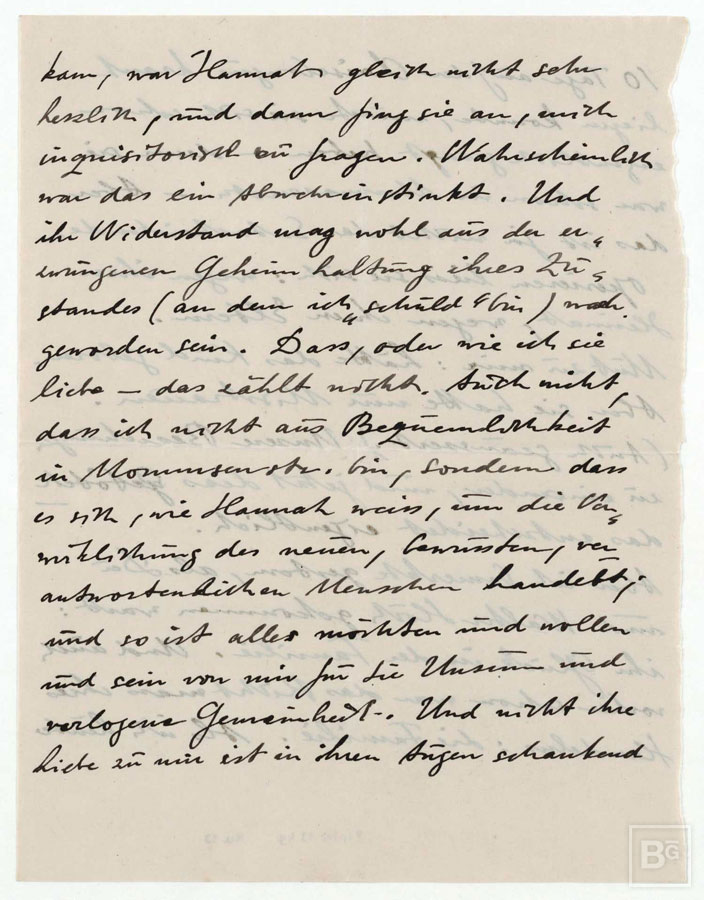 kam, war Hannah gleich nicht sehr
herzlich, und dann fing sie an, mich
inquisitorisch zu fragen. Wahrscheinlich
war das ein Abwehrinstinkt. Und
ihr Widerstand mag wohl aus der er„
zwungenen Geheimhaltung ihres Zu„
standes (an dem ich „schuld“ bin) wach
geworden sein. Dass, oder wie ich sie
liebe – das zählt nicht. Auch nicht,
dass ich nicht aus Bequemlichkeit
in Mommsenstr. bin, sondern dass
es sich, wie Hannah weiss, um die Ver„
wirklichung des neuen, bewussten, ver„
antwortenlichen Menschen handelt;
und so ist alles möchten und wollen
und sein von mir für sie Unsinn und
verlogene Gemeinheit. Und nicht ihre
Liebe zu mir ist in ihren Augen schwankend
BG